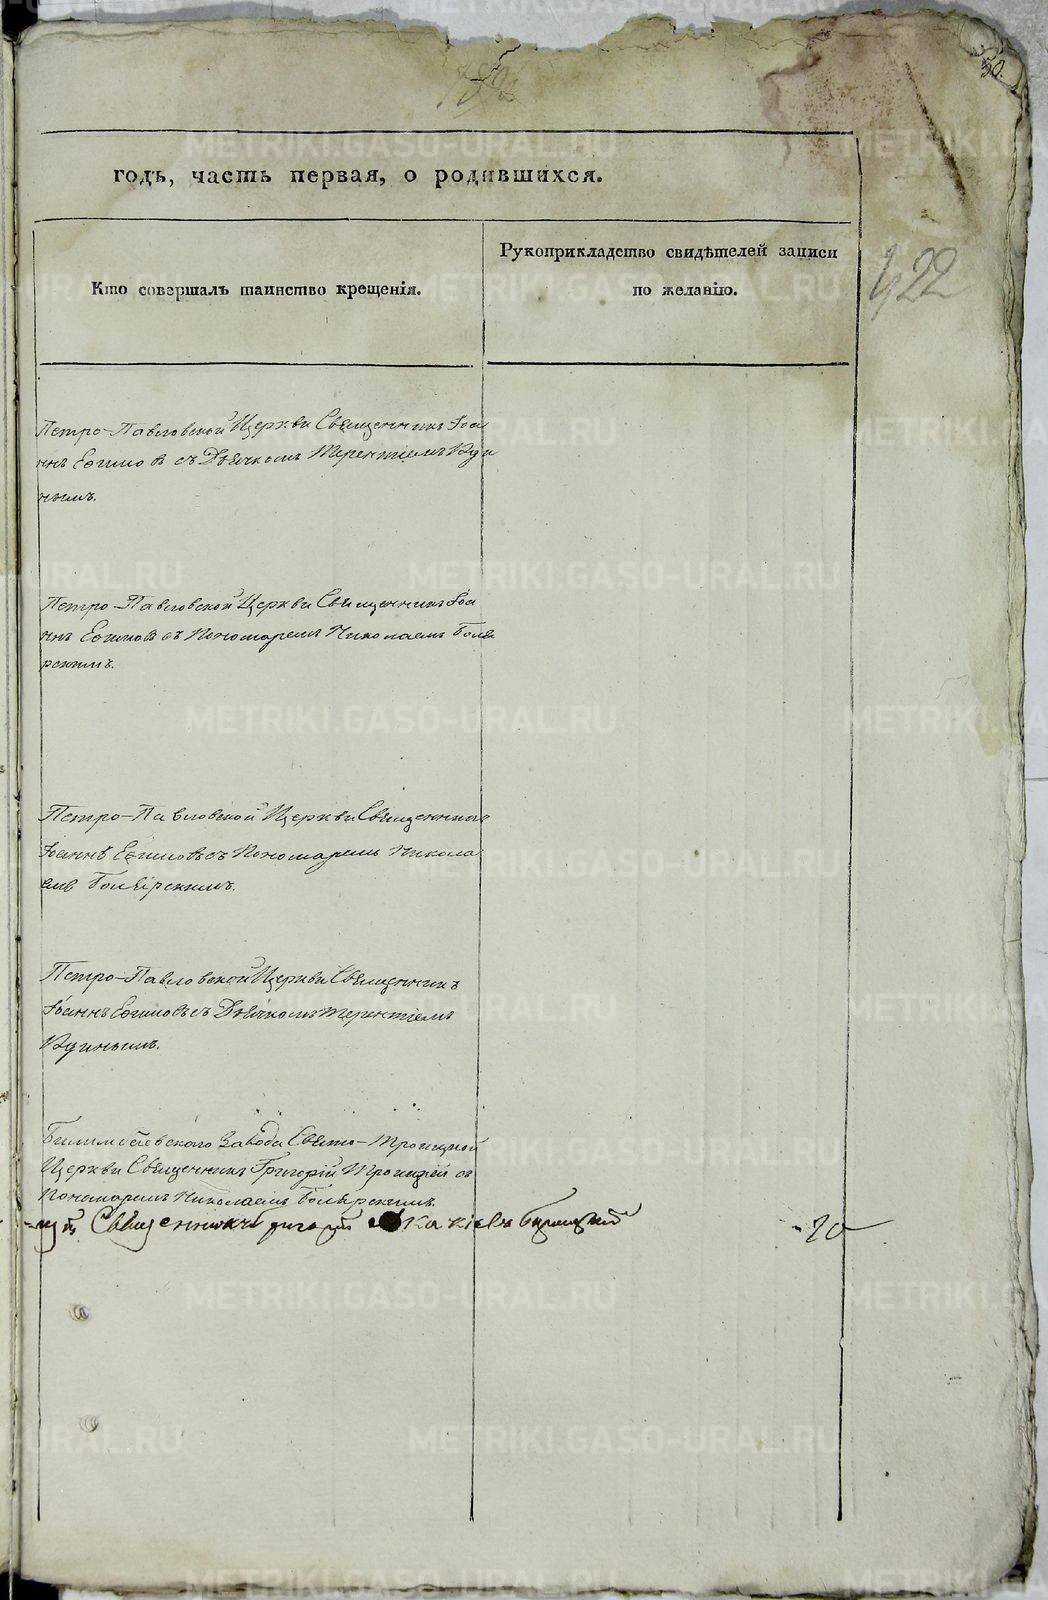 30.
годъ, часть первая, о родившихся.
Кто совершалъ таинство крещенія.
Рукоприкладство свидѣтелей записи
по желанію.
422
Петро-Павловской Церкви Священникъ Іоа
ннъ Еѳимовъ съ Дьячкомъ Терентіемъ
нымъ.
Петро-Павловской Церкви Священникъ Іоа
ннъ Еѳимовъ съ Пономаремъ Николаемъ Боля
рскимъ.
Петро-Павловской Церкви Священникъ
Іоаннъ Еѳимовъ съ Пономаремъ Никола
емъ Болярскимъ.
Петро-Павловской Церкви Священникъ
Іоаннъ Еѳимовъ съ Дьячкомъ Терентіемъ
Билимбаевскаго Завода Свято-Троицкой
Церкви Священникъ Григорій Троицкій съ
Пономаремъ Николаемъ Болярскимъ.
Священникъ Григорій
20
METRIKI.GASO-URAL.RU